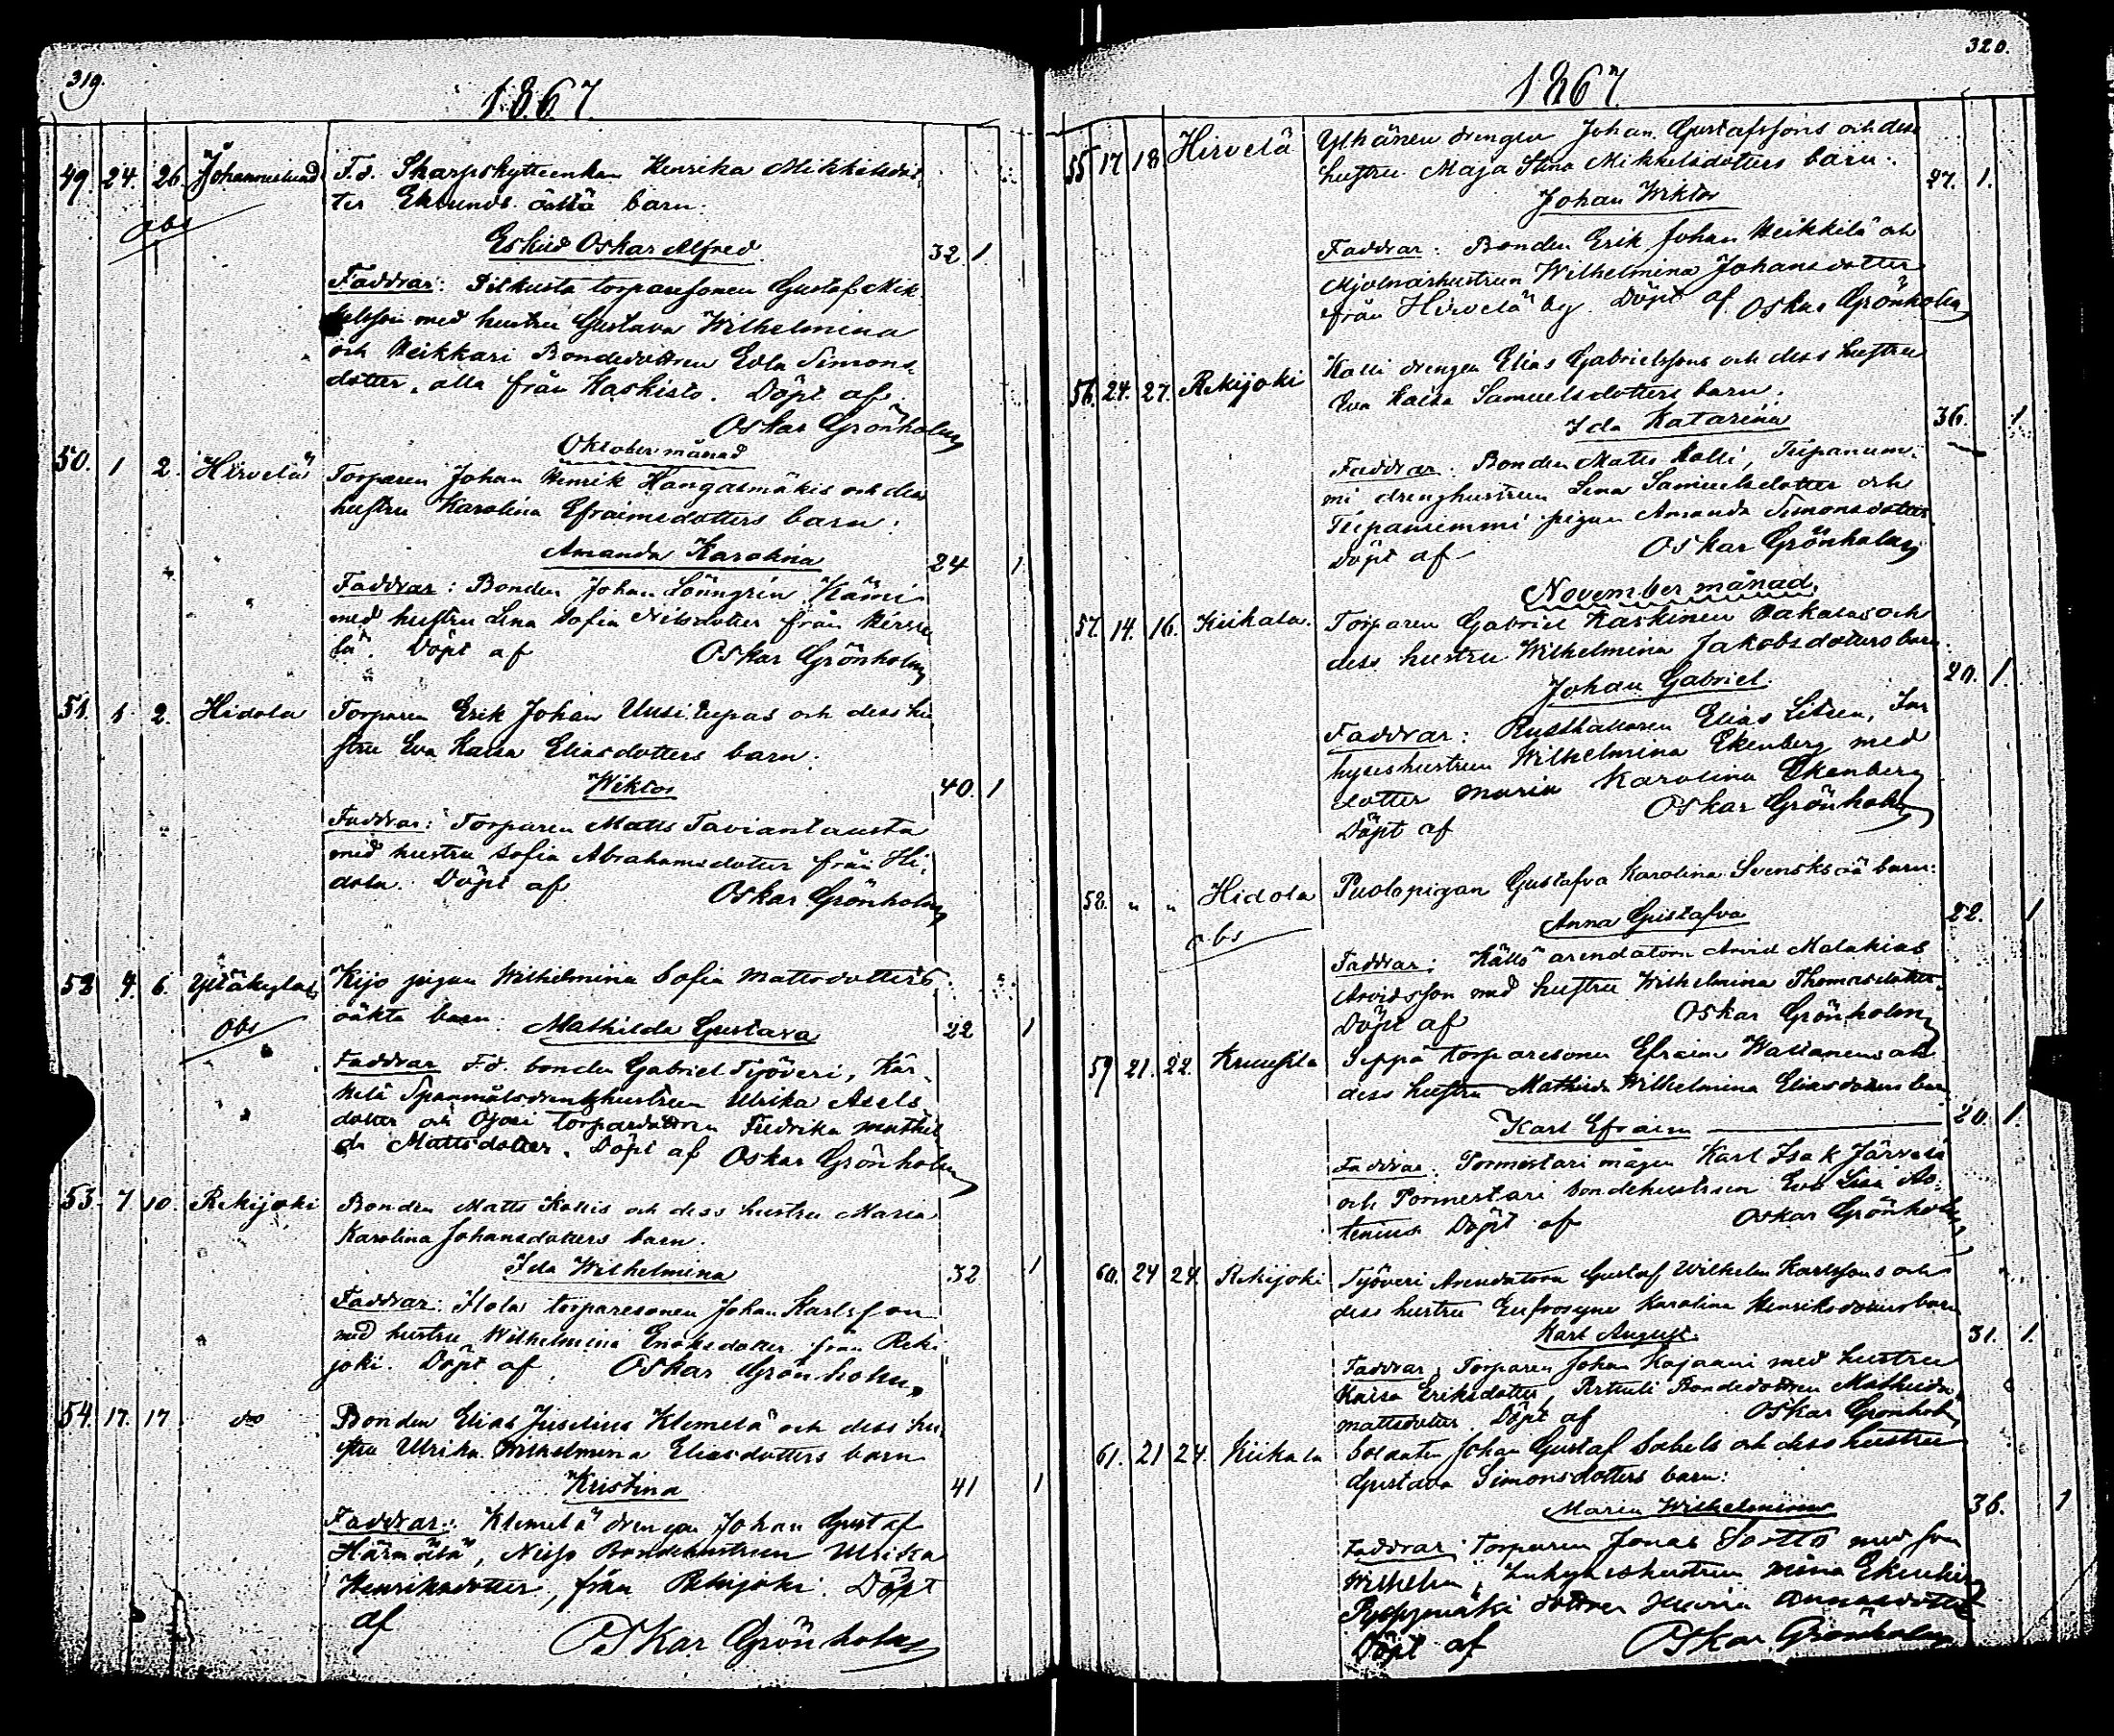 319.
1867.
49. 24. 26 Johanneslund F. d. Skarpskytteenkan Henrika Mikkelsdot
ter Eklunds oäkta barn.
obs
Eskild Oskar Alfred. 32. 1
Faddrar: Pitkusta torparesonen Gustaf Mik
kelsson med hustru Gustava Wilhelmina
och Heikkari Bondedottren Edla Simons
dotter, alla från Kaskisto. Döpt af
Oskar Grönholm
Oktober månad
50. 1 2. Hirvelä Torparen Johan Henrik Hangasmäkis och dess
hustru Karolina Efraimsdotters barn.
Amanda Karolina 24 1
Faddrar: Bonden Johan Lönngrén Kämi
med hustru Lena Sofia Nilsdotter från
lä. Döpt af Oskar Grönholm
51. 1 2. Hidola Torparen Erik Johan Uusitupas och dess hu
stru Eva Kaisa Eliasdotters barn.
Wiktor 40. 1
Faddrar: Torparen Matts Taviantausta
med hustru Sofia Abrahamsdotter från Hi
dola. Döpt af Oskar Grönholm
52 4. 6. Yltäkylä Kijo pigan Wilhelmina Sofia Mattsdotters
oäkta barn. Mathilda Gustava 22 1
obs
Faddrar F. d. bonden Gabriel Työveri, Kär
kelä Spanmålsdrenghustrun Ulrika Axels
dotter och Ojosi torparedottren Fredrika Mathil
da Mattsdotter. Döpt af Oskar Grönholm
53. 7 10. Rekijoki Bonden Matts Kallis och dess hustru Maria
Karolina Johansdotters barn.
Ida Wilhelmina 32 1
Faddrar: Hola torparesonen Johan Karlsson
med hustru Wilhelmina Enoksdotter från Reki
joki. Döpt af Oskar Grönholm
54. 17. 17 do Bonden Elias Juselius Klemelä och dess hu
stru Ulrika Wilhelmina Eliasdotters barn
Kristina 41 1
Faddrar: Klemelä drengen Johan Gustaf
Härmälä, Nisso Bondehustrun Ulrika
Henriksdotter, från Rekijoki. Döpt
af Oskar Grönholm
320.
1867.
55 17 18 Hirvelä Ylhänen drengen Johan Gustafssons och dess
hustru Maja Stina Mikkelsdotters barn.
27. 1.
Johan Wiktor
Faddrar: Bonden Erik Johan Heikkilä och
Mjölnarhustrun Wilhelmina Johansdotter
från Hirvelä by. Döpt af Oskar Grönholm
56. 24. 27. Rekijoki Kalli drengen Elias Gabrielssons och dess hustru
Eva Kaisa Samuelsdotters barn.
Ida Katarina 36. 1
Faddrar: Bonden Matts Kalli, Tiipanum
mi drenghustrun Lena Samuelsdotter och
Tiipanummi pigan Amanda Simonsdotter
Döpt af Oskar Grönholm
November månad.
57. 14. 16. Kiikala. Torparen Gabriel Kaskinen Bakalas och
dess hustru Wilhelmina Jakobsdotters barn.
Johan Gabriel. 20. 1.
Faddrar: Rusthållaren Elias Litsen, In
hyseshustrun Wilhelmina Ekenberg med
dotter Maria Karolina Ekenberg
Döpt af Oskar Grönholm
58. " " Hidola Puolapigan Gustafva Karolina Svensks oä barn:
obs
Anna Gustafva 22. 1
Faddrar: Källo arendatorn Arvid Malakias
Arvidsson med hustru Wilhelmina Thomasdotter.
Döpt af Oskar Grönholm
59 21. 22. Kruusila Seppä torparesonen Efraim Wallanens och
dess hustru Mathilda Wilhelmina Eliasdotters barn
Karl Efraim 20. 1.
Faddrar: Pormestari mågen Karl Isak Järvelä
och Pormestari bondehustrun Eva Lisa As
tenius Döpt af Oskar Grönholm
60. 24 24. Rekijoki Työveri Arendatorn Gustaf Wilhelm Karlssons och
dess hustru Eufrosyne Karolina Henriksdotters barn
Karl August. 31. 1.
Faddrar: Torparen Johan Kajaani med hustru
Kaisa Eriksdotter, Perttuli Bondedottren Mathilda
Mattsdotter Döpt af Oskar Grönholm
61. 21 24. Kiikala Soldaten Johan Gustaf Sabels och dess hustru
Gustava Simonsdotters barn:
Maria Wilhelmina 36. 1
Faddrar: Torparen Jonas Sortto med son
Wilhelm, Inhyseshustrun Mina Ekenberg
dottren Annasdotter
Döpt af Oskar Grönholm